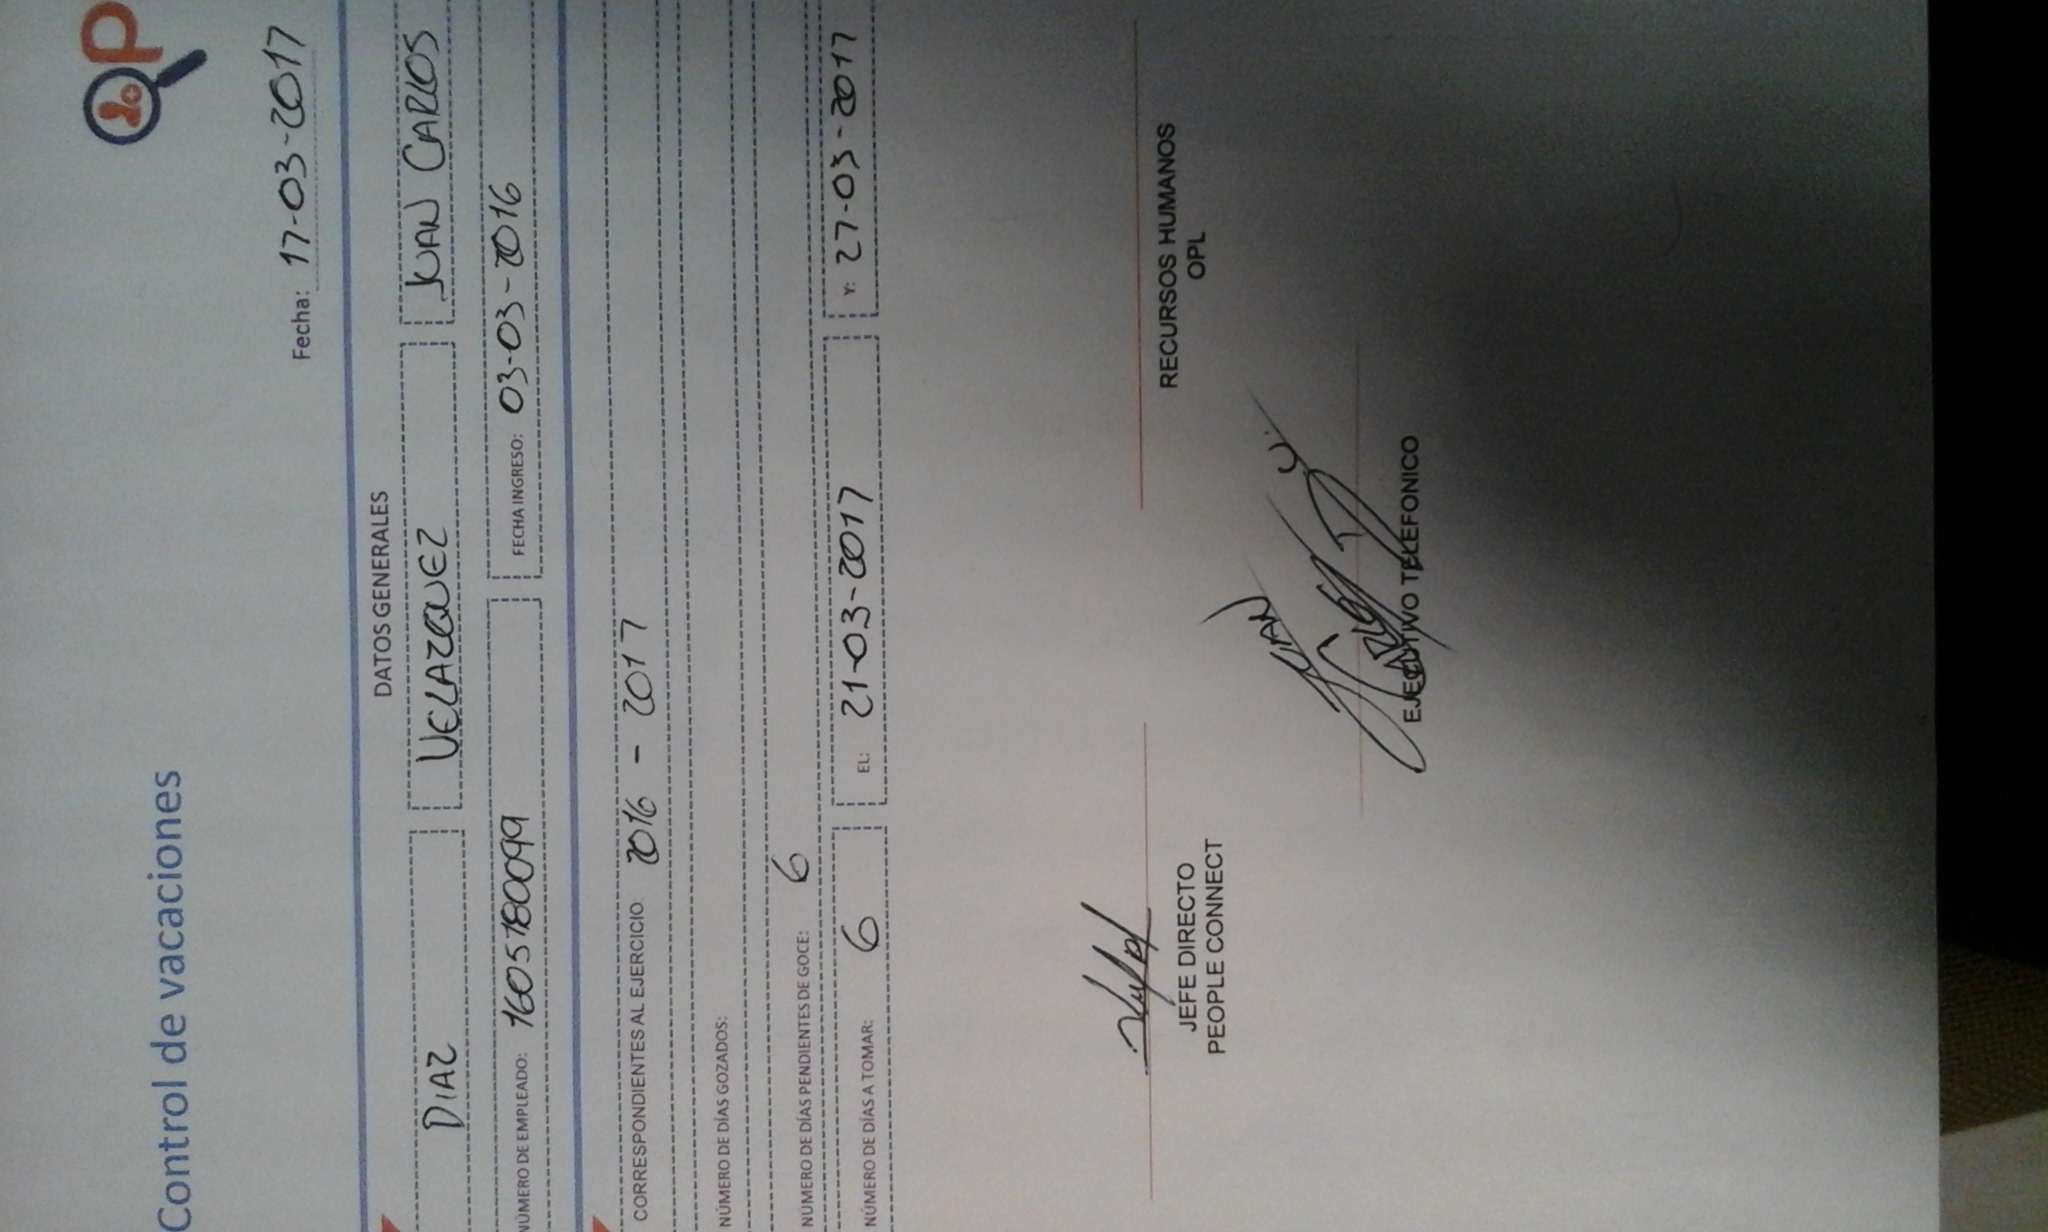 Control de vacaciones
OP
Fecha: 17-03-2017
DATOS GENERALES
DIAZ VELAZQUEZ JUAN CARLOS
NÚMERO DE EMPLEADO: 1605180099 FECHA INGRESO: 03-03-2016
CORRESPONDIENTES AL EJERCICIO: 2016 - 2017
NÚMERO DE DÍAS GOZADOS:
NÚMERO DE DÍAS PENDIENTES DE GOCE: 6
NÚMERO DE DÍAS A TOMAR: 6 EL: 21-03-2017 Y: 27-03-2017
JEFE DIRECTO RECURSOS HUMANOS
PEOPLE CONNECT OPL
JUAN
CARLOS
EJECUTIVO TELEFONICO